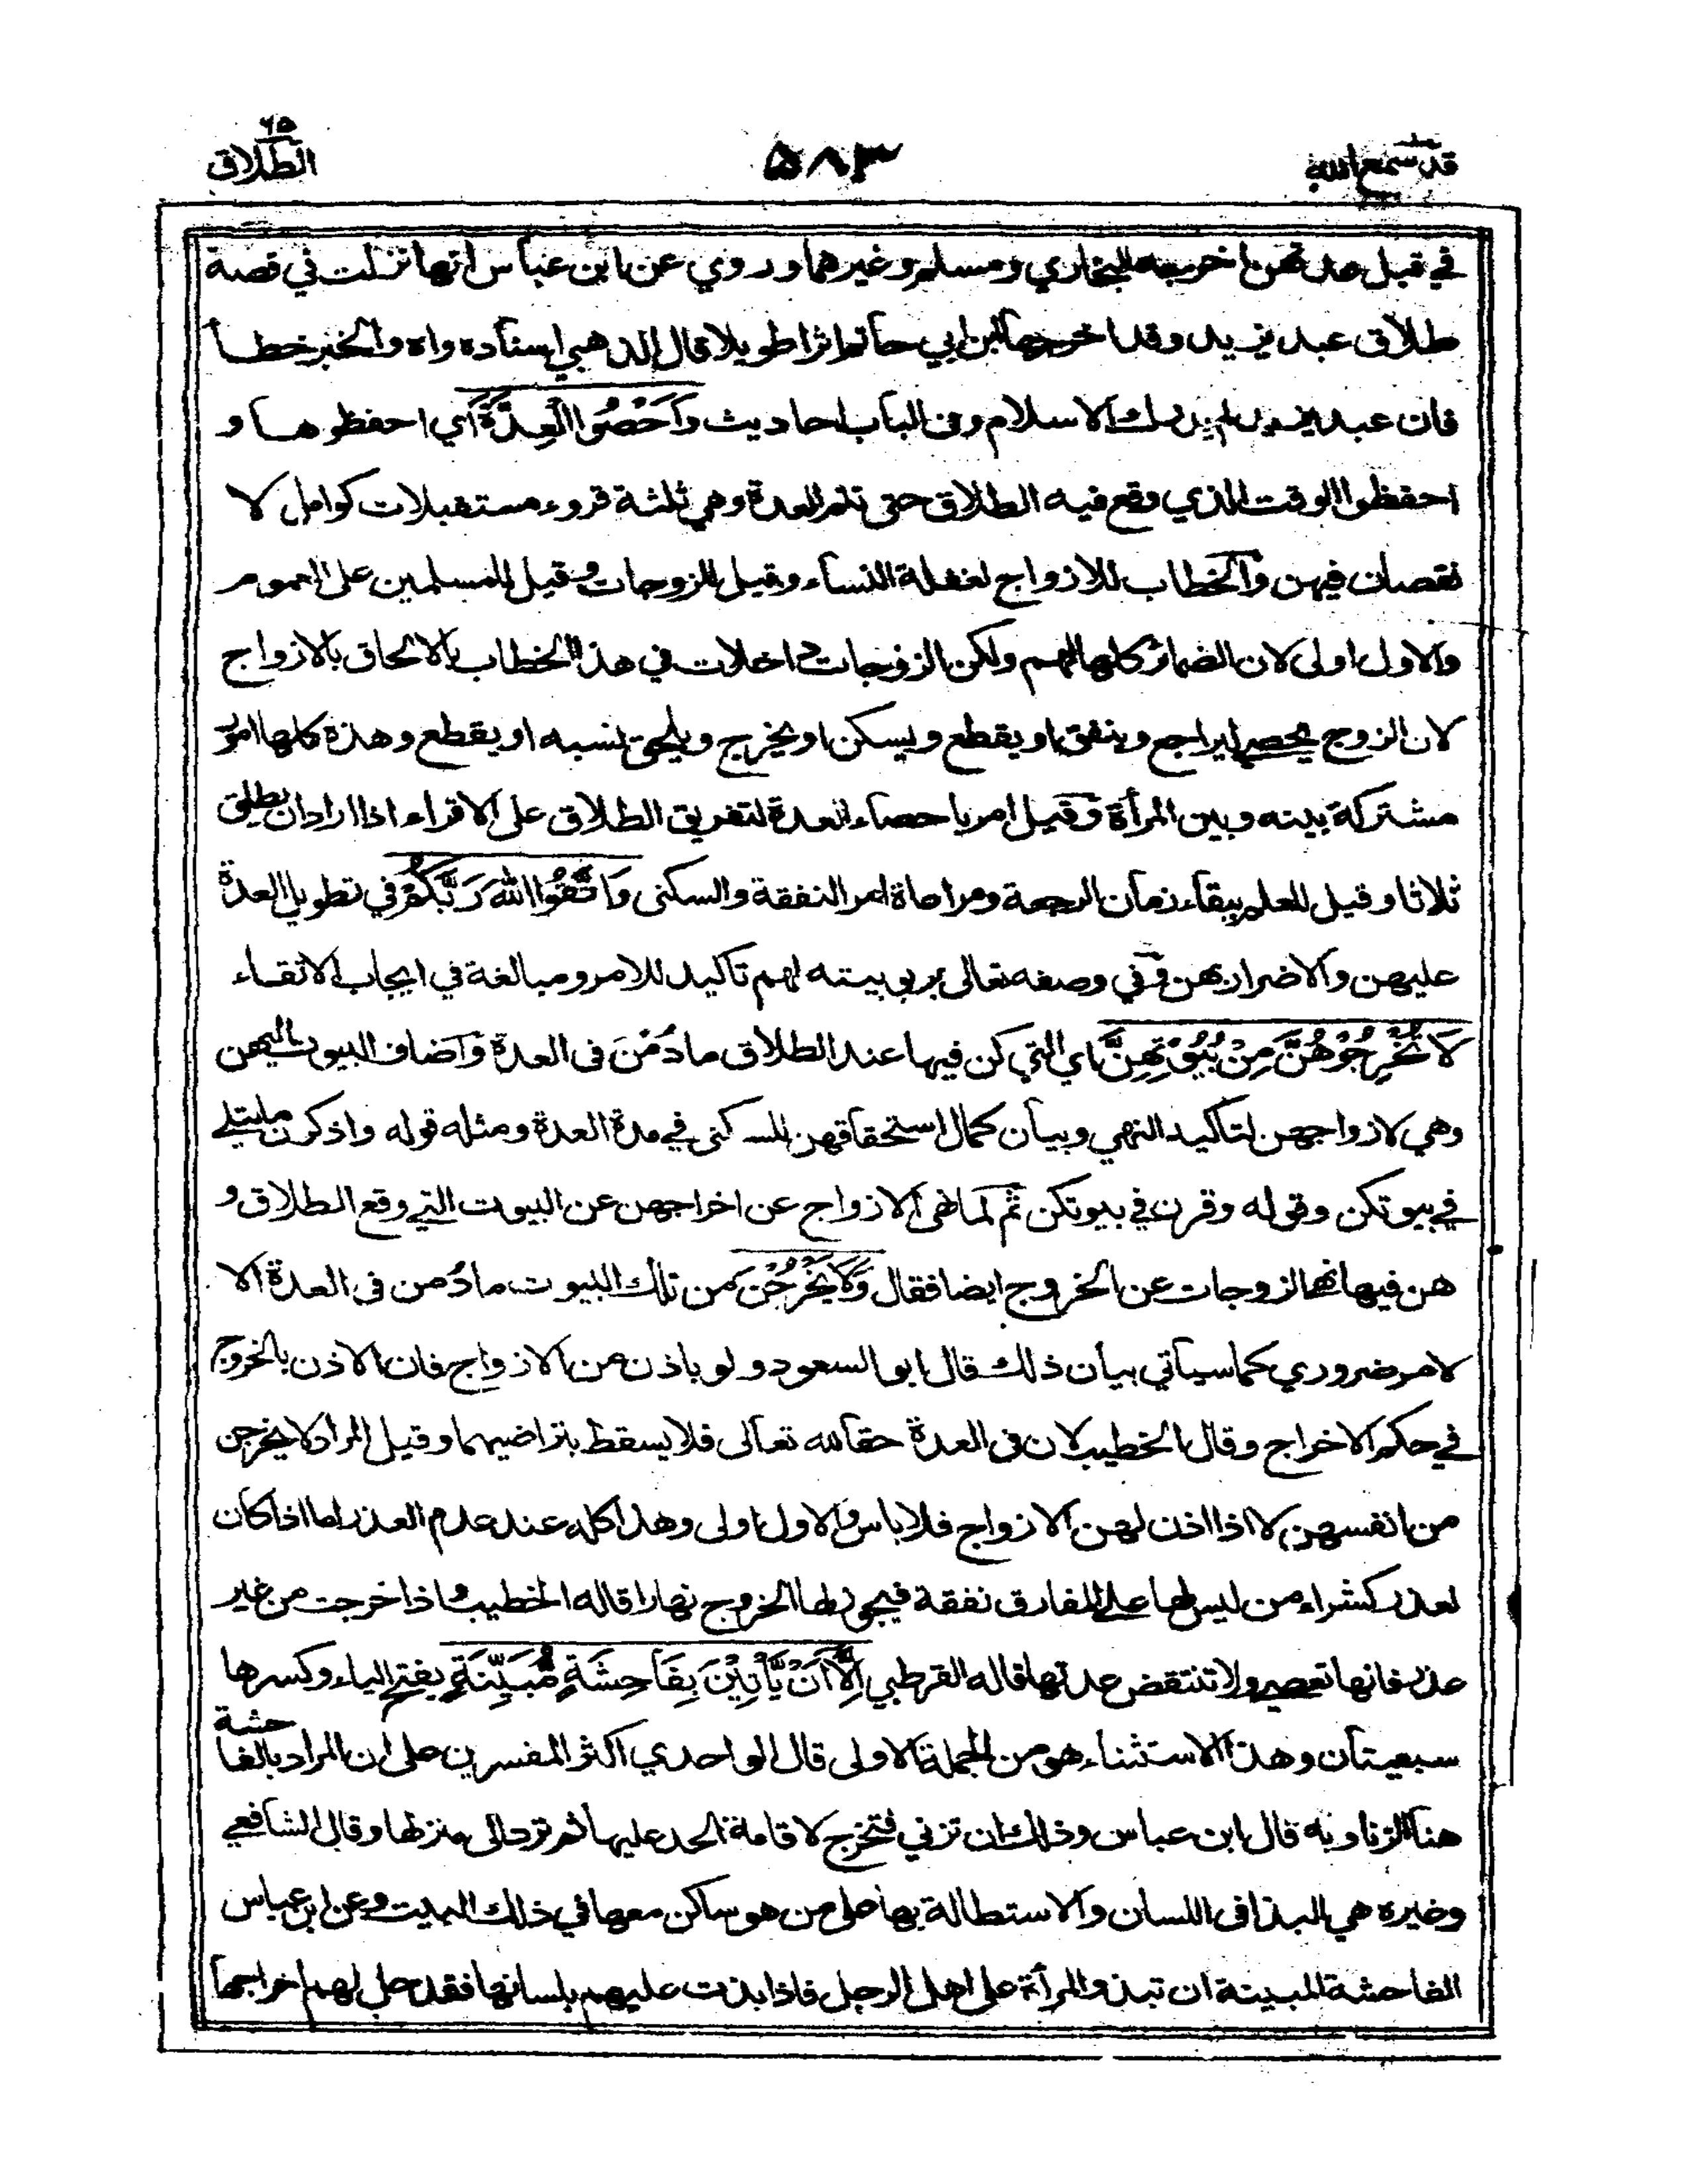 قد سمع الله
٥٨٣
٦٥
الطلاق
في قبل عدتهن اخرجه البخاري ومسلم وغيرهما وروي عن ابن عباس انها نزلت في قصة
طلاق عبد يزيد وقد اخرجها ابن ابي حاتم اثرا طويلا قال الذهبي اسناده واه والخبر خطأ
فان عبد يزيد لم يدرك الاسلام وفى الباب احاديث وَاَحْصُوا الْعِدَّةَ اي احفظوها و
احفظوا الوقت الذي وقع فيه الطلاق حتى تتم العدة وهي ثلثة قروء مستقبلات كوامل لا
نقصان فيهن والخطاب للازواج لغفلة النساء وقيل للزوجات وقيل للمسلمين على العموم
والاول اولى لان الضمائر كلها لهم ولكن الزوجات داخلات في هذا الخطاب بالالحاق بالازواج
لان الزوج يحصي ليراجع وينفق او يقطع ويسكن او يخرج ويلحق نسبه او يقطع وهذه كلها امور
مشتركة بينه وبين المرأة وقيل امر باحصاء العدة لتفريق الطلاق على الاقراء اذا اراد ان يطلق
ثلاثا وقيل للعلم ببقاء زمان الرجعة ومراعاة امر النفقة والسكنى وَاتَّقُوا اللّٰهَ رَبَّكُمْ في تطويل العدة
عليهن والاضرار بهن وفي وصفه تعالى بربوبيته لهم تاكيد للامر ومبالغة في ايجاب الاتقاء
لَا تُخْرِجُوْهُنَّ مِنْ بُيُوْتِهِنَّ اي التي كن فيها عند الطلاق ما دُمْنَ فى العدة واضاف البيوت اليهن
وهي لازواجهن لتاكيد النهي وبيان كمال استحقاقهن للسكنى في مدة العدة ومثله قوله واذكرن ما يتلى
في بيوتكن وقوله وقرن في بيوتكن ثم لما نهى الازواج عن اخراجهن عن البيوت التي وقع الطلاق و
هن فيها نهى الزوجات عن الخروج ايضا فقال وَلَا يَخْرُجْنَ من تلك البيوت ما دُمن فى العدة الا
لامر ضروري كما سيأتي بيان ذلك قال ابو السعود ولو باذن من الازواج فان الاذن بالخروج
في حكم الاخراج وقال الخطيب لان فى العدة حقا لله تعالى فلا يسقط بتراضيهما وقيل المراد لا يخرجن
من انفسهن لا اذا اذن لهن الازواج فلا باس والاول اولى وهذا كله عند عدم العذر اما اذا كان
لعذر كشراء من ليس لها على المفارق نفقة فيجوز لها الخروج نهارا قاله الخطيب واذا خرجت من غير
عذر فانها تعصي ولا تنتقض عدتها قاله القرطبي اِلَّا اَنْ يَّأْتِيْنَ بِفَاحِشَةٍ مُّبَيِّنَةٍ بفتح الياء وكسرها
سبعيتان وهذا الاستثناء هو من الجملة الاولى قال الواحدي اكثر المفسرين على ان المراد بالفاحشة
هنا الزنا وبه قال ابن عباس وذلك ان تزني فتخرج لاقامة الحد عليها ثم ترد الى منزلها وقال الشافعي
وغيره هي البذا فى اللسان والاستطالة بها على من هو ساكن معها في ذلك البيت وعن ابن عباس
الفاحشة المبينة ان تبذو المرأة على اهل الرجل فاذا بذت عليهم بلسانها فقد حل لهم اخراجها